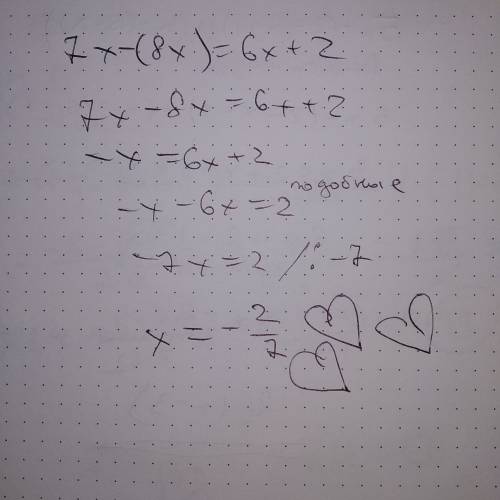 7x-(8x)=6x+2
7x-8x=6x+2
-x=6x+2
подобные
-x-6x=2
-7x=2 /:-7
x=-2/7